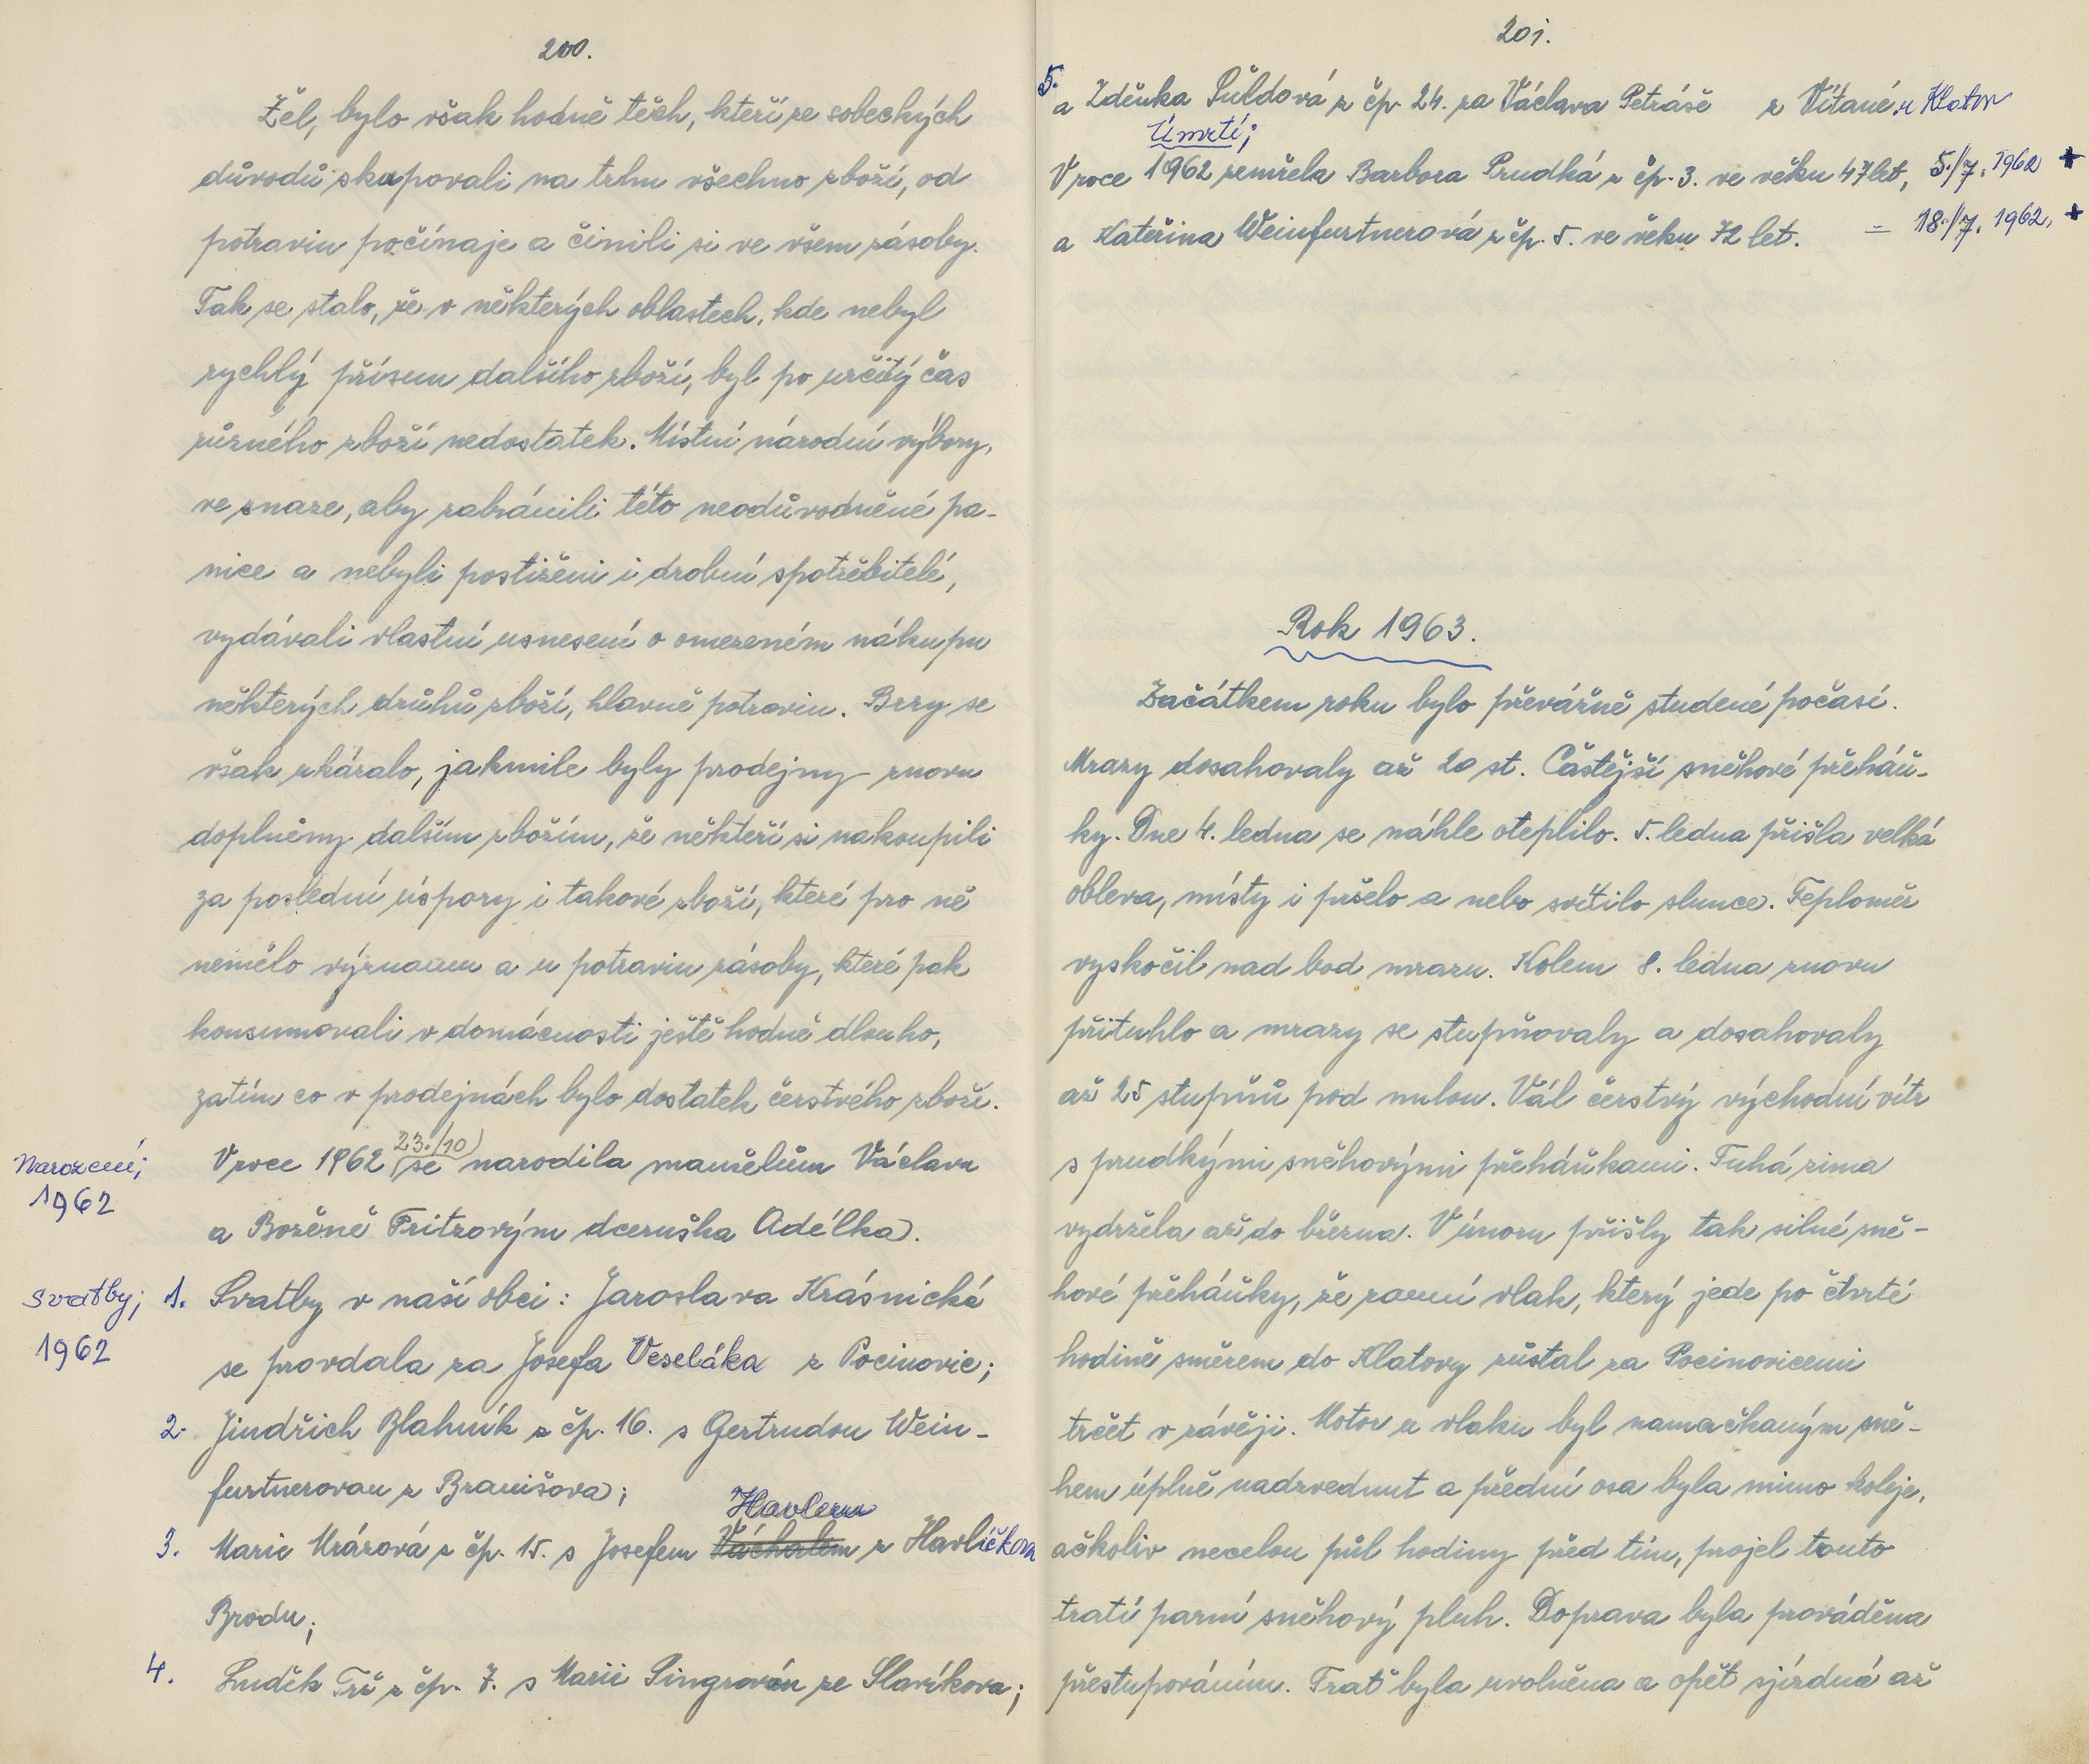 200.
Žel, bylo však hodně těch, kteří ze sobeckých
důvodů skupovali na trhu všechno zboží, od
potravin počínaje a činili si ve všem zásoby.
Tak se stalo, že v některých oblastech, kde nebyl
rychlý přísun dalšího zboží, byl po určitý čas
různého zboží nedostatek. Místní národní výbory,
ve snaze, aby zabránili této neodůvodněné pa-
nice a nebyli postiženi i drobní spotřebitelé,
vydávali vlastní usnesení o omezeném nákupu
některých druhů zboží, hlavně potravin. Brzy se
však ukázalo, jakmile byly prodejny znovu
doplněny dalším zbožím, že někteří si nakoupili
za poslední úspory i takové zboží, které pro ně
nemělo význam a u potravin zásoby, které pak
konsumovali v domácnosti ještě hodně dlouho,
zatím co v prodejnách bylo dostatek čerstvého zboží.
Narození;
1962
V roce 1962 (23./10) se narodila manželům Václavu
a Boženě Fritzovým dceruška Adélka.
Svatby;
1962
1. Svatby v naší obci: Jaroslava Krásnická
se provdala za Josefa Veseláka z Pocinovic;
2. Jindřich Blahník z čp. 16. s Gertrudou Wein-
furtnerovou z Branišova;
Havlem
3. Marie Mrázová z čp. 15. s Josefem Váchalem z Havlíčkova
Brodu;
4. Luděk Trš z čp. 7. s Marií Singrovou ze Slavíkova;
201.
5. a Zděnka Šůldová z čp. 24. za Václava Petráše z Vítané u Klatov
Úmrtí;
V roce 1962 zemřela Barbora Prudká z čp. 3. ve věku 47 let, 5./7. 1962
a Kateřina Weinfurtnerová z čp. 5. ve věku 72 let. = 18./7. 1962,
Rok 1963.
Začátkem roku bylo převážně studené počasí.
Mrazy dosahovaly až 20 st. Častější sněhové přeháň-
ky. Dne 4. ledna se náhle oteplilo. 5. ledna přišla velká
obleva, místy i pršelo a nebo svítilo slunce. Teploměr
vyskočil nad bod mrazu. Kolem 8. ledna znovu
přituhlo a mrazy se stupňovaly a dosahovaly
až 25 stupňů pod nulou. Vál čerstvý východní vítr
s prudkými sněhovými přeháňkami. Tuhá zima
vydržela až do března. V únoru přišly tak silné sně-
hové přeháňky, že ranní vlak, který jede po čtvrté
hodině směrem do Klatovy zůstal za Pocinovicemi
trčet v závěji. Motor u vlaku byl namačkaným sně-
hem úplně nadzvednut a přední osa byla mimo koleje,
ačkoliv necelou půl hodiny před tím, projel touto
tratí parní sněhový pluh. Doprava byla prováděna
přestupováním. Trať byla uvolněna a opět sjízdná až